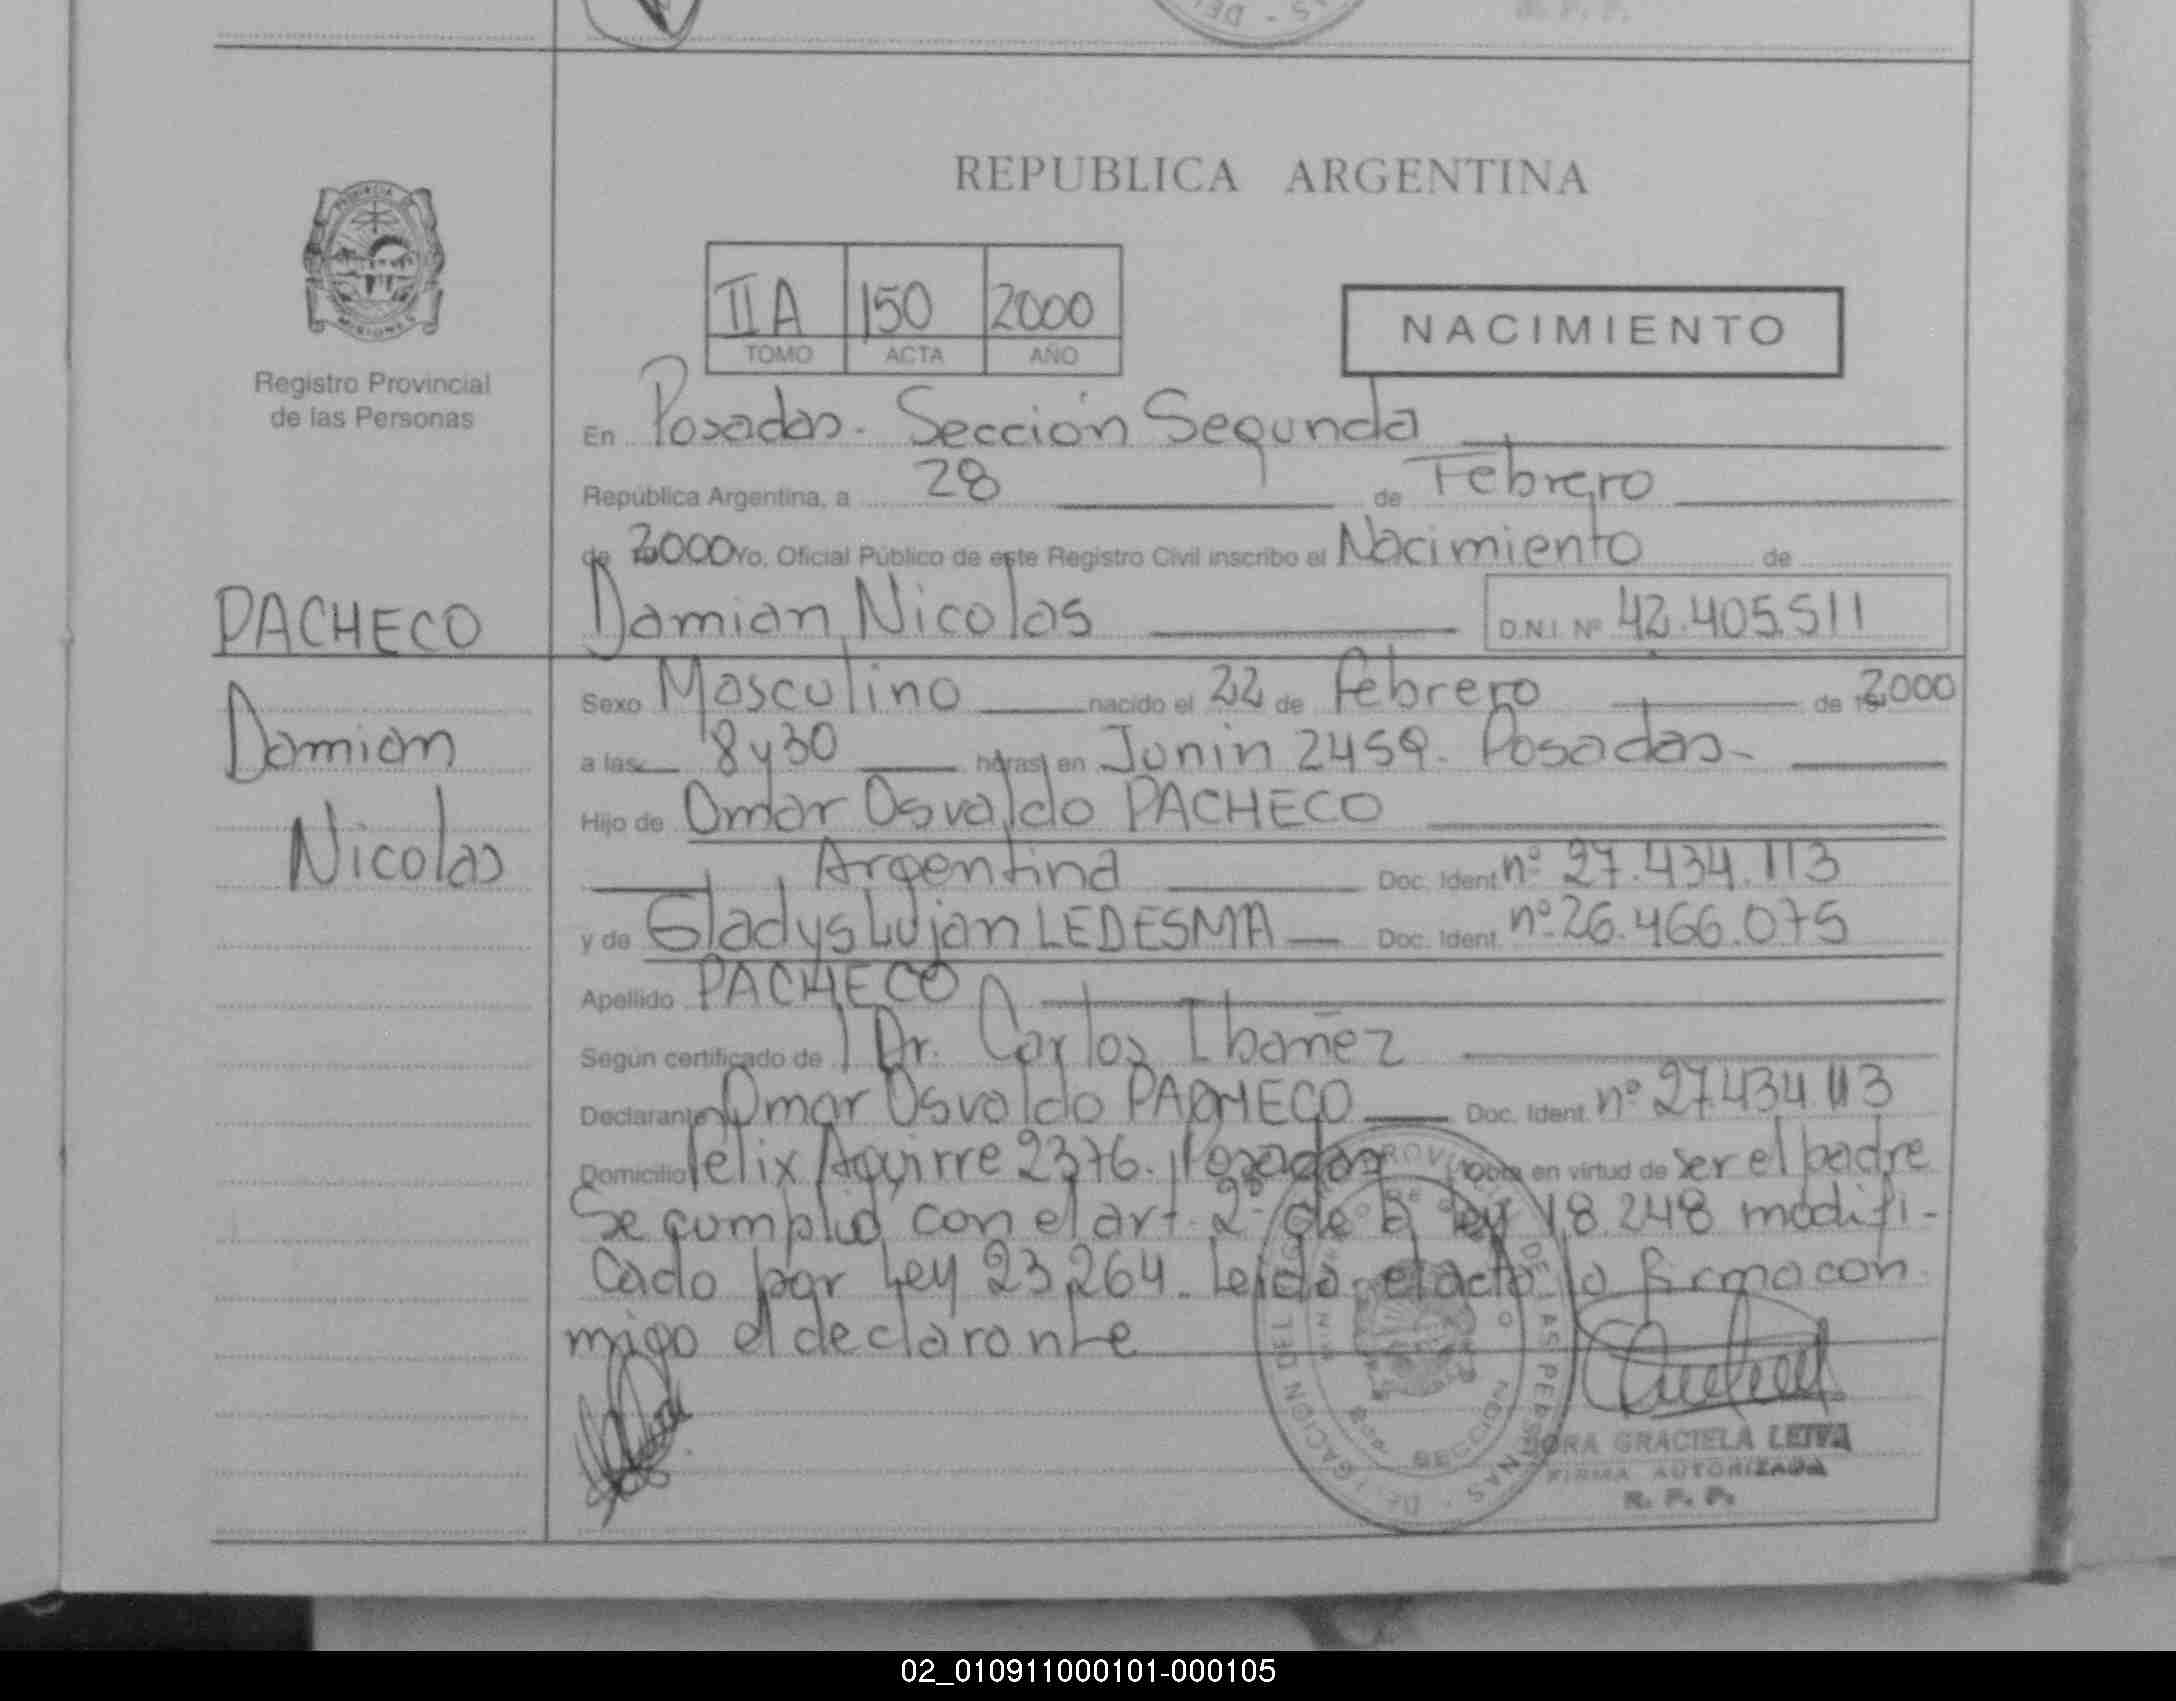 REPUBLICA ARGENTINA
PROVINCIA
MISIONES
Registro Provincial
de las Personas
II A 150 2000
TOMO ACTA AÑO
NACIMIENTO
En Posadas. Sección Segunda
República Argentina, a 28 de Febrero
de 2000 Yo, Oficial Público de este Registro Civil inscribo el Nacimiento de
PACHECO
Damian Nicolas D.N.I. Nº 42.405.511
Damian
Nicolas
Sexo Masculino nacido el 22 de Febrero de 2000
a las 8 y 30 horas en Junin 2459. Posadas-
Hijo de Omar Osvaldo PACHECO
Argentina Doc. Ident. nº 27.434.113
y de Gladys Lujan LEDESMA Doc. Ident. nº 26.466.075
Apellido PACHECO
Según certificado de Dr. Carlos Ibañez
Declarante Omar Osvaldo PACHECO Doc. Ident. nº 27434113
Domicilio Felix Aguirre 2376. Posadas Obra en virtud de ser el padre
Se cumplió con el art. 2º de la ley 18.248 modifi-
cado por Ley 23.264. Leida el acta la firma con
migo el declarante
GRACIELA LEIVA
FIRMA AUTORIZADA
R. P. P.
02_010911000101-000105